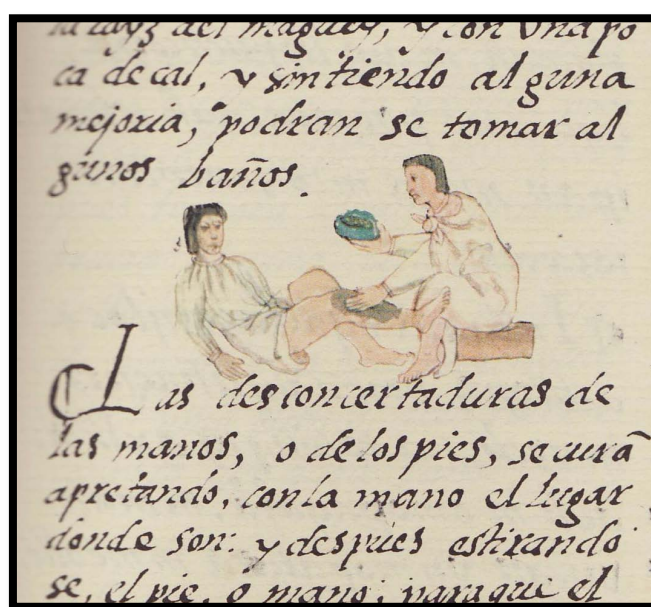 la rayz del maguey, y con una po
ca de cal, y sintiendo alguna
mejoria, podran se tomar al
gunos baños.
Las desconcertaduras de
las manos, o de los pies, se curã
apretando, con la mano el lugar
donde son: y despues estirando
se, el pie, o mano; para que el